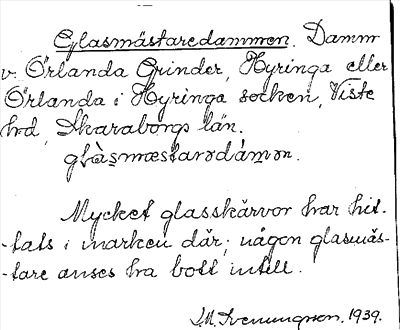 Glasmästaredammen. Damm
v. Örlanda Grinder, Hyringa eller
Örlanda i Hyringa socken, Viste
hd, Skaraborgs län.
Mycket glasskärvor har hit-
-tats i marken där; någon glasmäs-
-tare anses ha bott intill.
1939.